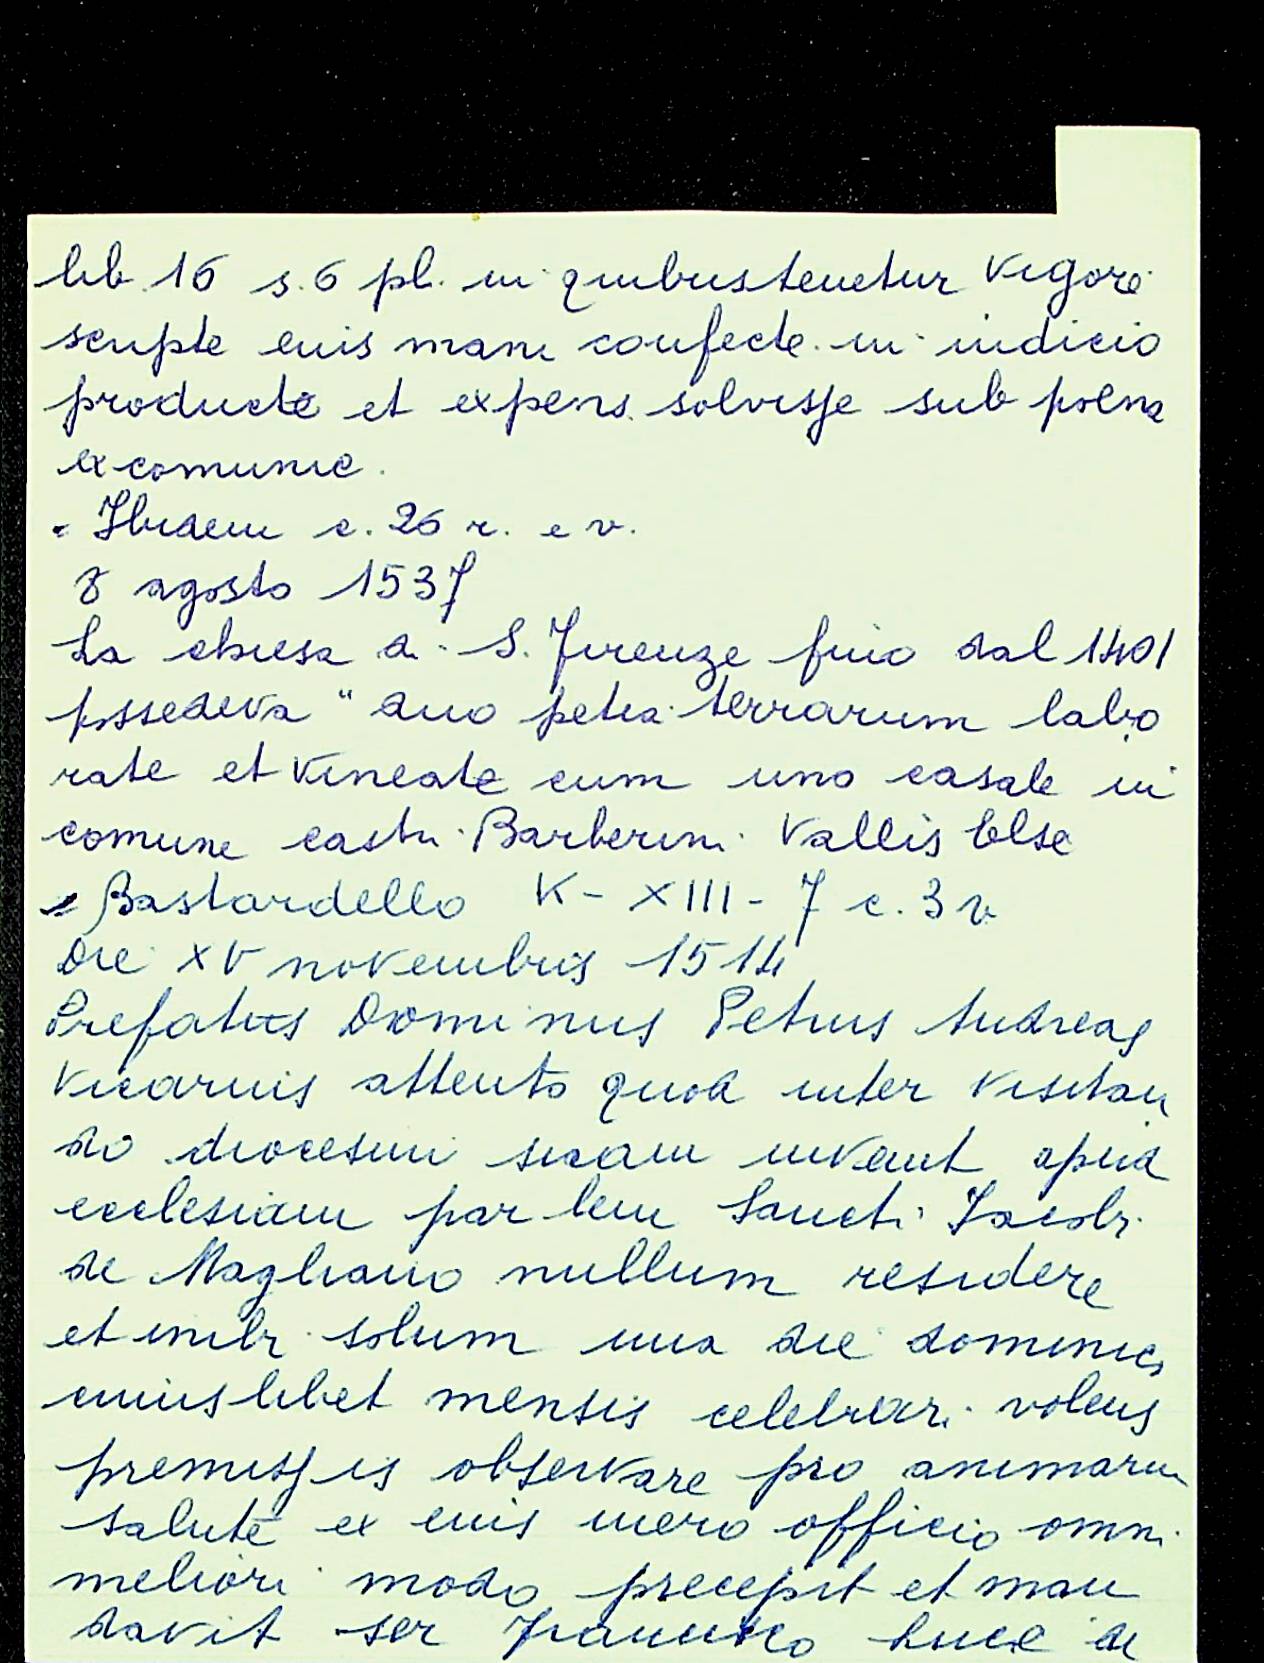 lib. 16 s. 6 pl. in quibus tenetur vigore
scripte eius manu confecte in iudicio
producte et expens. solvisse sub pena
excomunic.
Ibidem c. 26 r. e v.
8 agosto 1537
La chiesa di S. Firenze fino dal 1401
possedeva "duo petia terrarum labo
rate et vineate cum uno casale in
comune castri Barberini Vallis Else
Bastardello K - XIII - 7 c. 3 v
Die XV novembris 1514
Prefatus Dominus Petrus Andreas
Vicarius attento quod inter visitan
do diocesim suam invenit apud
ecclesiam par lem Sancti Iacobi
de Magliano nullum residere
et inibi solum una die dominica
cuiuslibet mensis celebrari volens
premissis observare pro animarum
salute ex eius mero officio omni
meliori modo precepit et man
davit ser Francisco Luce de